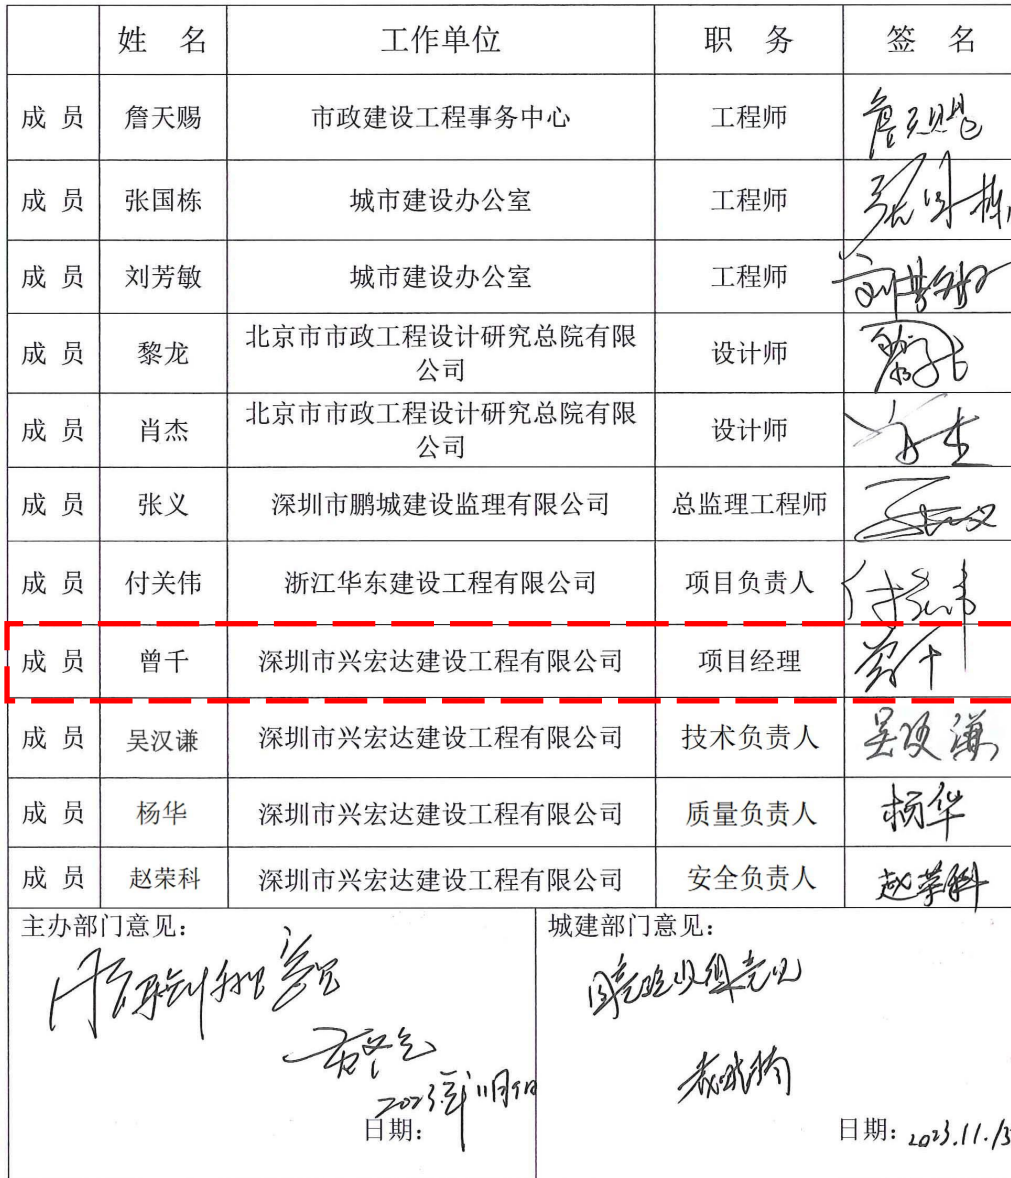 姓 名 工作单位 职 务 签 名
成 员 詹天赐 市政建设工程事务中心 工程师 詹天赐
成 员 张国栋 城市建设办公室 工程师 张国栋
成 员 刘芳敏 城市建设办公室 工程师 刘芳敏
成 员 黎龙 北京市市政工程设计研究总院有限
公司 设计师 黎龙
成 员 肖杰 北京市市政工程设计研究总院有限
公司 设计师 肖杰
成 员 张义 深圳市鹏城建设监理有限公司 总监理工程师 张义
成 员 付关伟 浙江华东建设工程有限公司 项目负责人 付关伟
成 员 曾千 深圳市兴宏达建设工程有限公司 项目经理 曾千
成 员 吴汉谦 深圳市兴宏达建设工程有限公司 技术负责人 吴汉谦
成 员 杨华 深圳市兴宏达建设工程有限公司 质量负责人 杨华
成 员 赵荣科 深圳市兴宏达建设工程有限公司 安全负责人 赵荣科
主办部门意见：
同意验收组意见
2023年11月9日
日期：
城建部门意见：
同意验收组意见
日期：2023.11.13